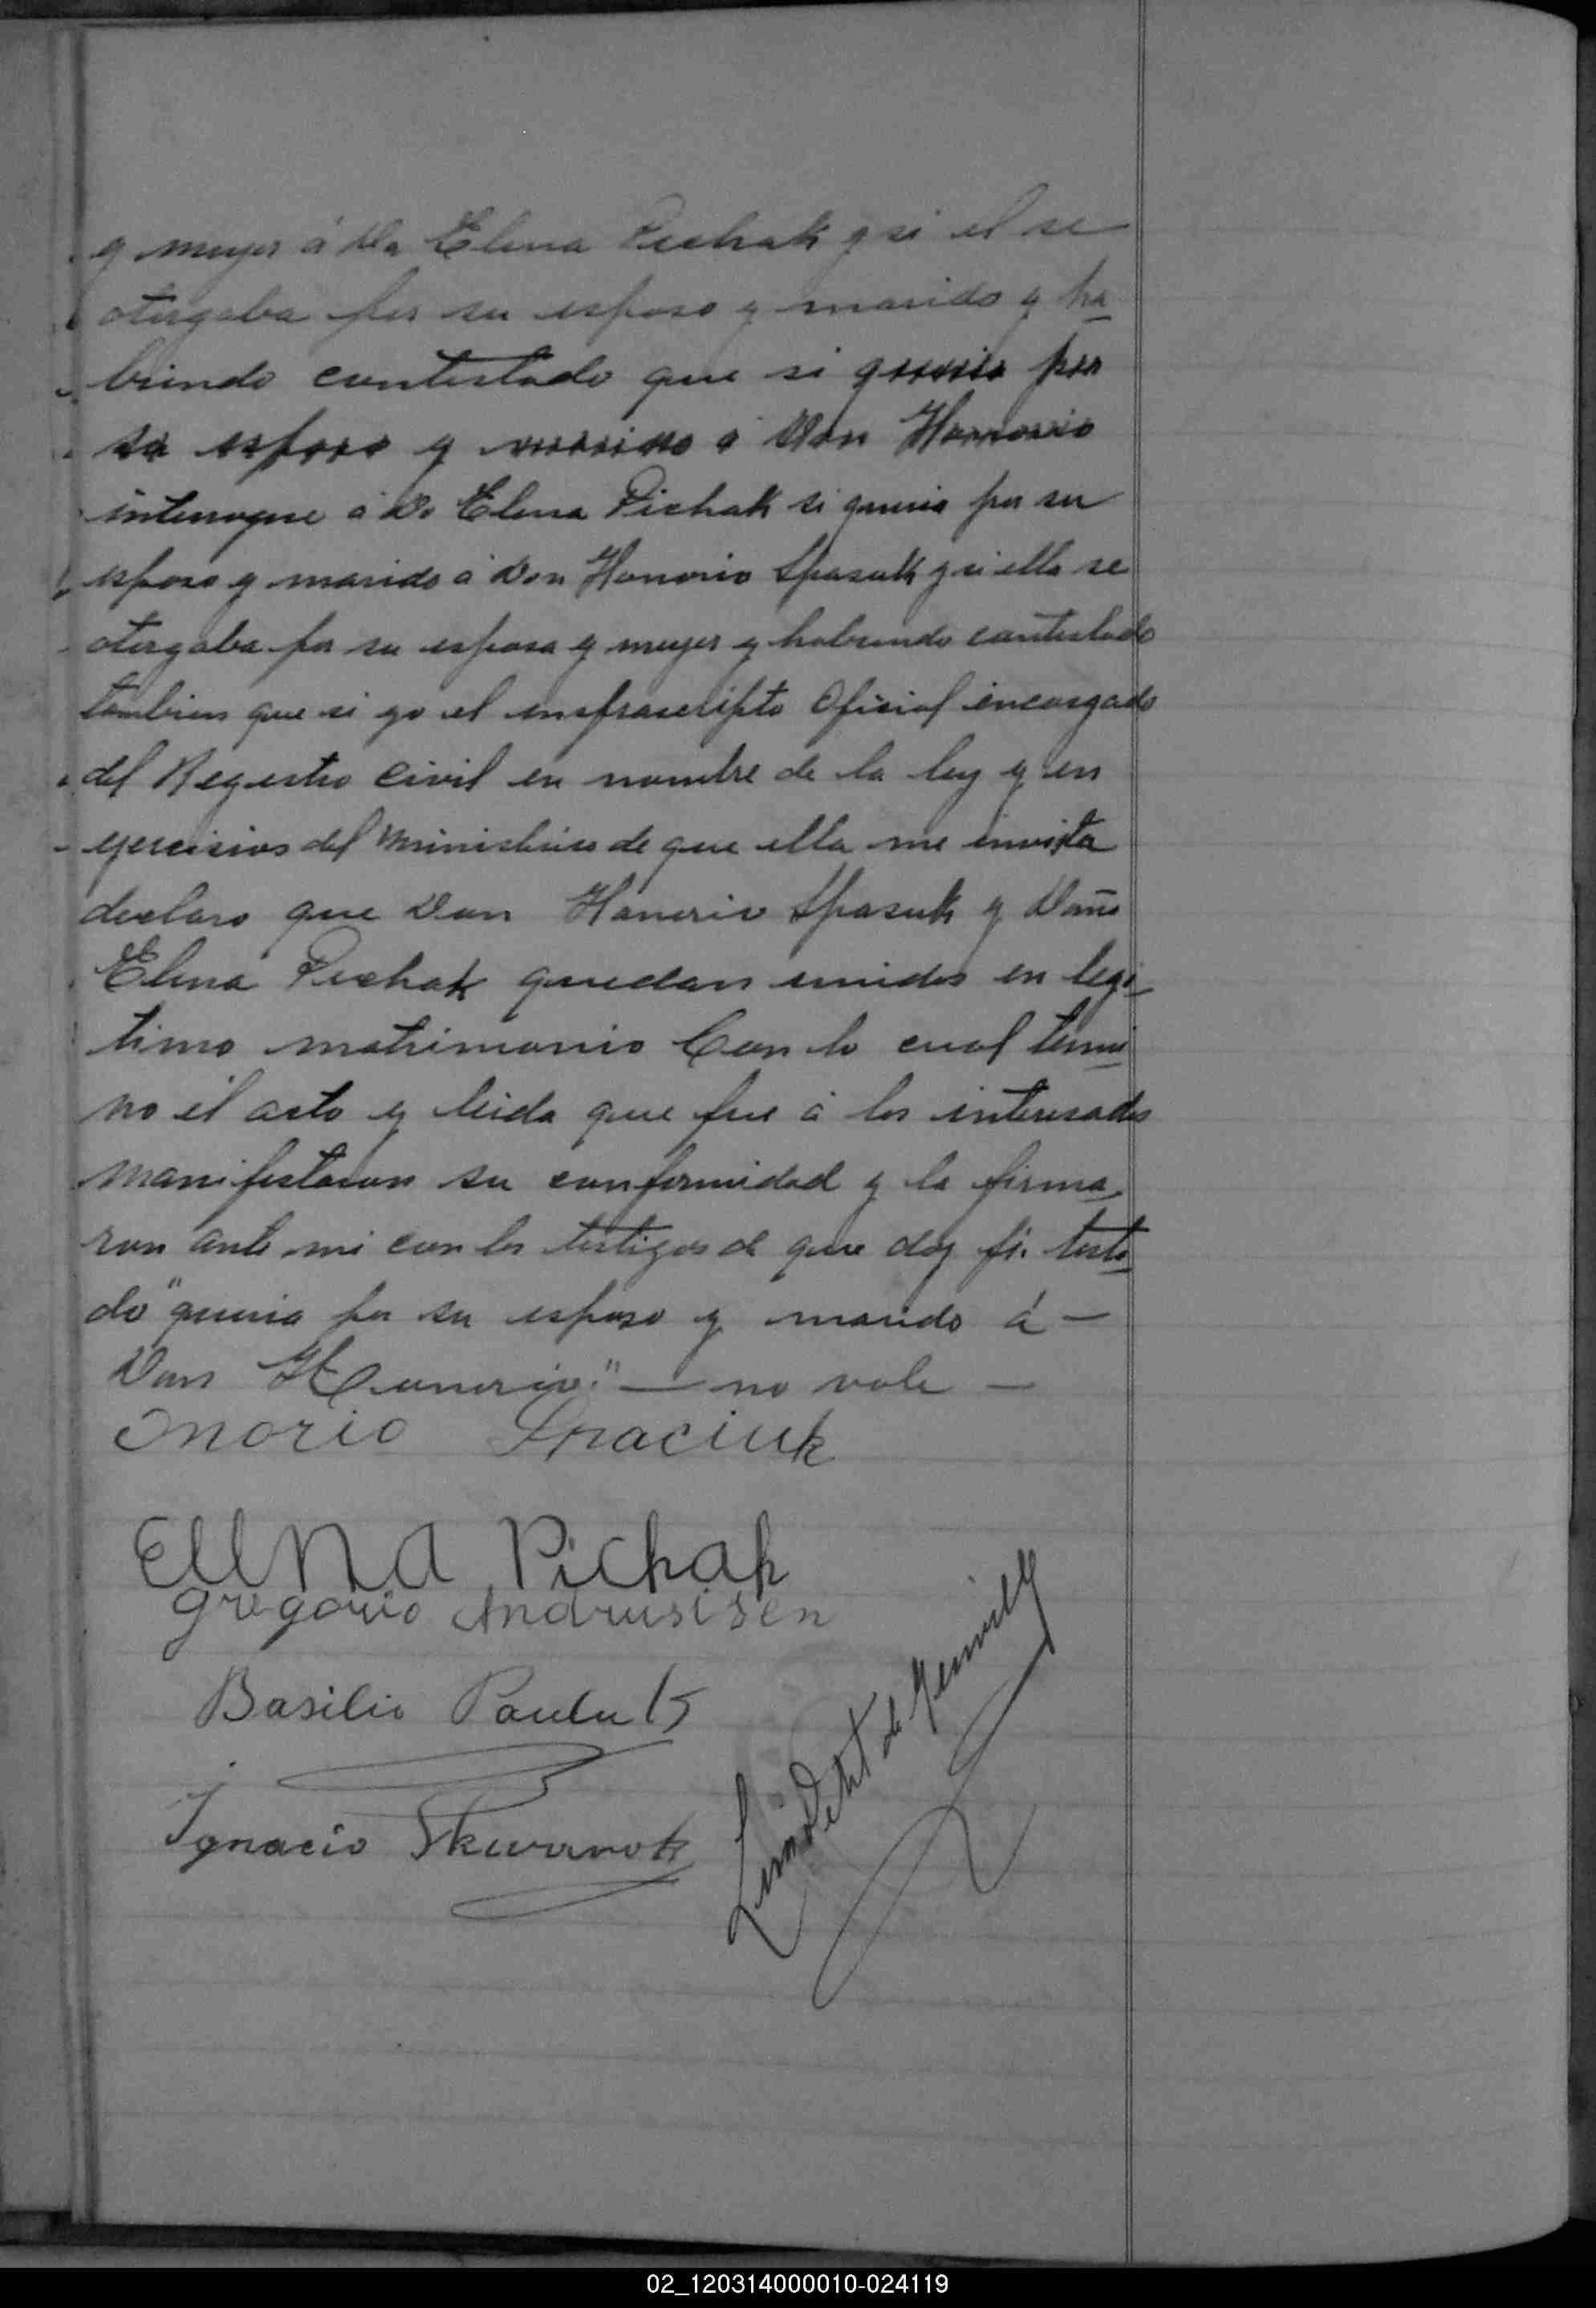 y mujer á Da Elena Pichak y si el se
otorgaba por su esposo y marido y ha
biendo contestado que si queria por
su esposo y marido a Don Honorio
interrogue a Da Elena Pichak si queria por su
esposo y marido a Don Honorio Spasuk y si ella se
otorgaba por su esposa y mujer y habiendo contestado
tambien que si yo el infrascripto Oficial encargado
del Registro Civil en nombre de la ley y en
ejercicios del Ministerio de que ella me invista
declaro que Don Honorio Spasuk y Doña
Elena Pichak quedan unidos en legi
timo matrimonio Con lo cual termi
no el acto y leida que fue á los interesados
manifestaron su conformidad y la firma
ron ante mi con los testigos de que doy fé. testa
do "queria por su esposo y marido á —
Don Honorio" — no vale —
Onorio Spaciuk
Elena Pichak
Gregorio
Basilio
Ignacio
de
02_120314000010-024119